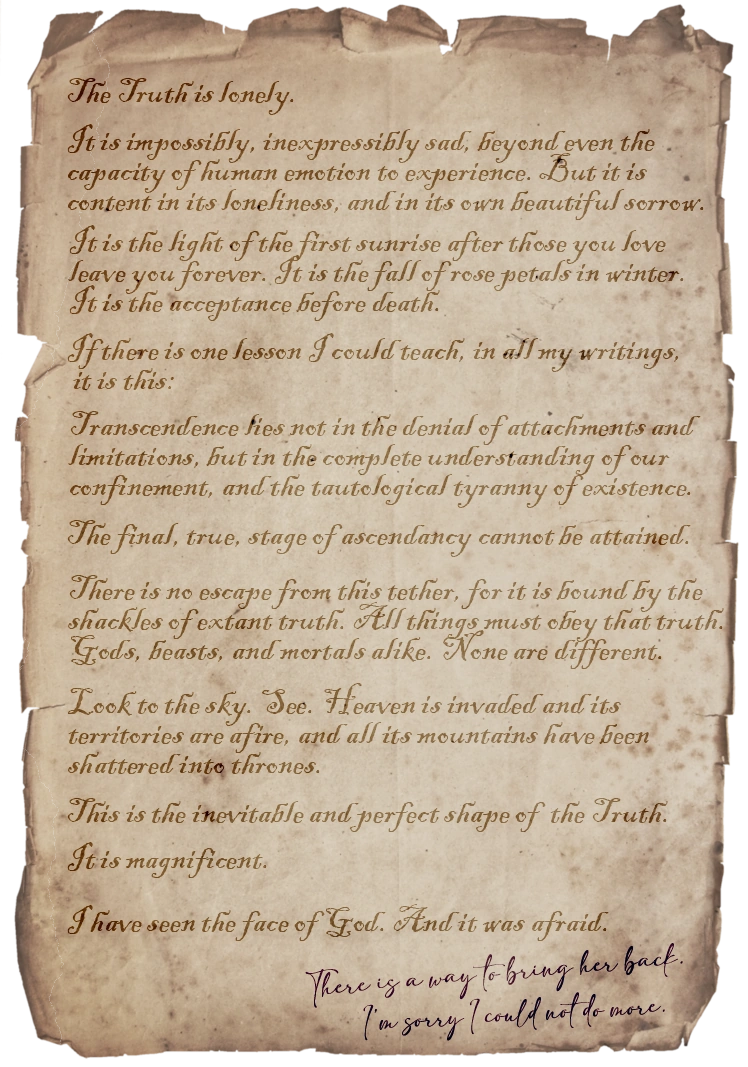 The Truth is lonely.
It is impossibly, inexpressibly sad, beyond even the
capacity of human emotion to experience. But it is
content in its loneliness, and in its own beautiful sorrow.
It is the light of the first sunrise after those you love
leave you forever. It is the fall of rose petals in winter.
It is the acceptance before death.
If there is one lesson I could teach, in all my writings,
it is this:
Transcendence lies not in the denial of attachments and
limitations, but in the complete understanding of our
confinement, and the tautological tyranny of existence.
The final, true, stage of ascendancy cannot be attained.
There is no escape from this tether, for it is bound by the
shackles of extant truth. All things must obey that truth.
Gods, beasts, and mortals alike. None are different.
Look to the sky. See. Heaven is invaded and its
territories are afire, and all its mountains have been
shattered into thrones.
This is the inevitable and perfect shape of the Truth.
It is magnificent.
I have seen the face of God. And it was afraid.
There is a way to bring her back.
I'm sorry I could not do more.